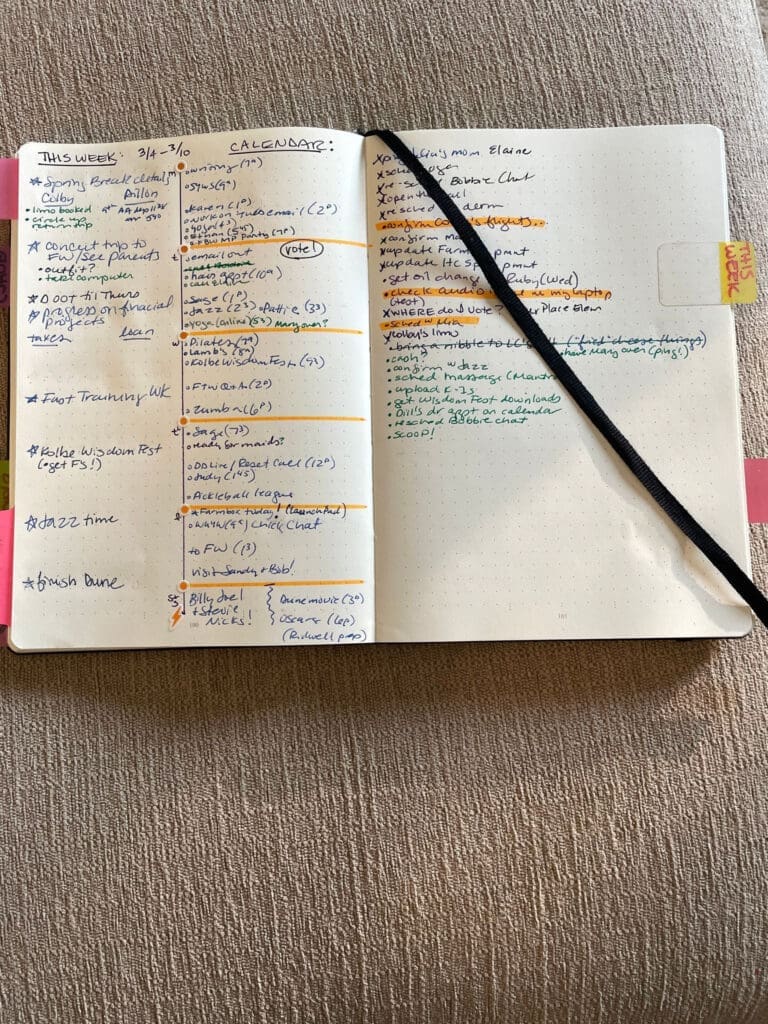 THIS WEEK: 3/4 – 3/10
* Spring Break details
Colby Dillon
• limo booked
• circle up
returnship
* Concert trip to
FW/see parents
• outfit?
• take computer
* DOOT til Thurs
* Progress on financial
projects
taxes loan
* Fast Training WK
* Kolbe Wisdom Fest
(• get FS!)
* Jazz time
* finish Dune
CALENDAR:
m
• writing (7ª)
• Karen (1º)
• work on email (2º)
• Ethan (5⁴⁵)
• FBW MP Party (7º)
vote!
t
• email out
• hair appt (10ª)
• Sage (1º)
• Jazz (2³) • Pattie (3³)
• yoga (online) (5³) Mary over?
w
• Pilates (7ª)
• Lamb's (8ª)
• Kolbe Wisdom Fest (9ª)
• FTW Q+A (2º)
• Zumba (6º)
t
• Sage (7³)
• ready for maids?
• DD Live / Reset Call (12º)
• Judy (1⁴⁵)
• Pickleball league
f
• * Farmbox today! (LaunchPad)
• WAYW (9ª) Chick Chat
to FW (1³)
visit Sandy + Bob!
S+
S
Billy Joel
+ Stevie
Nicks!
Dune movie (3º)
Oscars (6p)
(Ridwell prep)
190
x mom Elaine
x re-sched Bobbie Chat
x open the mail
x resched derm
• confirm flights..
x confirm
x update Farm pmnt
x update HCSp pmnt
• set oil change Ruby (Wed)
• check audio in my laptop
(test)
x WHERE do I vote? Place Elem
• sched w Mia
x Colby's limo
• bring a nibble to LC's ("fried cheese things)
• cash? • have Mary over (ping!)?
• confirm w Jazz
• sched massage (Mantra
• upload K-1s
• get Wisdom Fest downloads
• Dill's dr appt on calendar
• resched Bobbie chat
• SCOOP!
THIS
WEEK
191